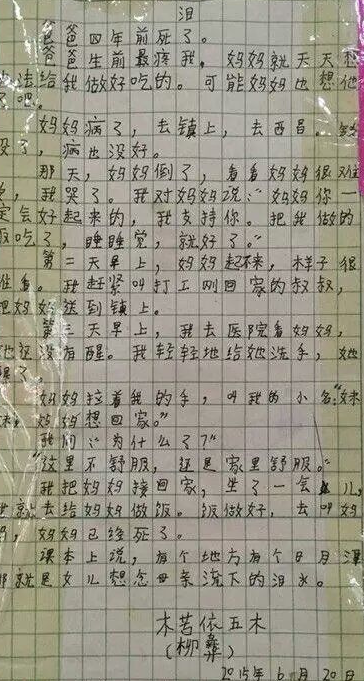 泪
爸爸四年前死了。
爸爸生前最疼我，妈妈就天天想
办法给我做好吃的。可能妈妈也想他
了吧。
妈妈病了，去镇上，去西昌。钱
没了，病也没好。
那天，妈妈倒了，看看妈妈很难
我哭了。我对妈妈说：“妈妈你一
定会好起来的，我支持你。把我做的
饭吃了，睡睡觉，就好了。”
第二天早上，妈妈起不来，样子很
难看。我赶紧叫打工刚回家的叔叔，
把妈妈送到镇上。
第三天早上，我去医院看妈妈，
她还没有醒。我轻轻地给她洗手，她
醒了。
妈妈拉着我的手，叫我的小名：“妹
妹，妈妈想回家。”
我问：“为什么了？”
“这里不舒服，还是家里舒服。”
我把妈妈接回家，坐了一会儿，
我就去给妈妈做饭。饭做好，去叫妈
妈，妈妈已经死了。
课本上说，有个地方有个日月潭
那就是女儿想念母亲流下的泪水。
木苦依五木
（柳彝）
2015年6月20日